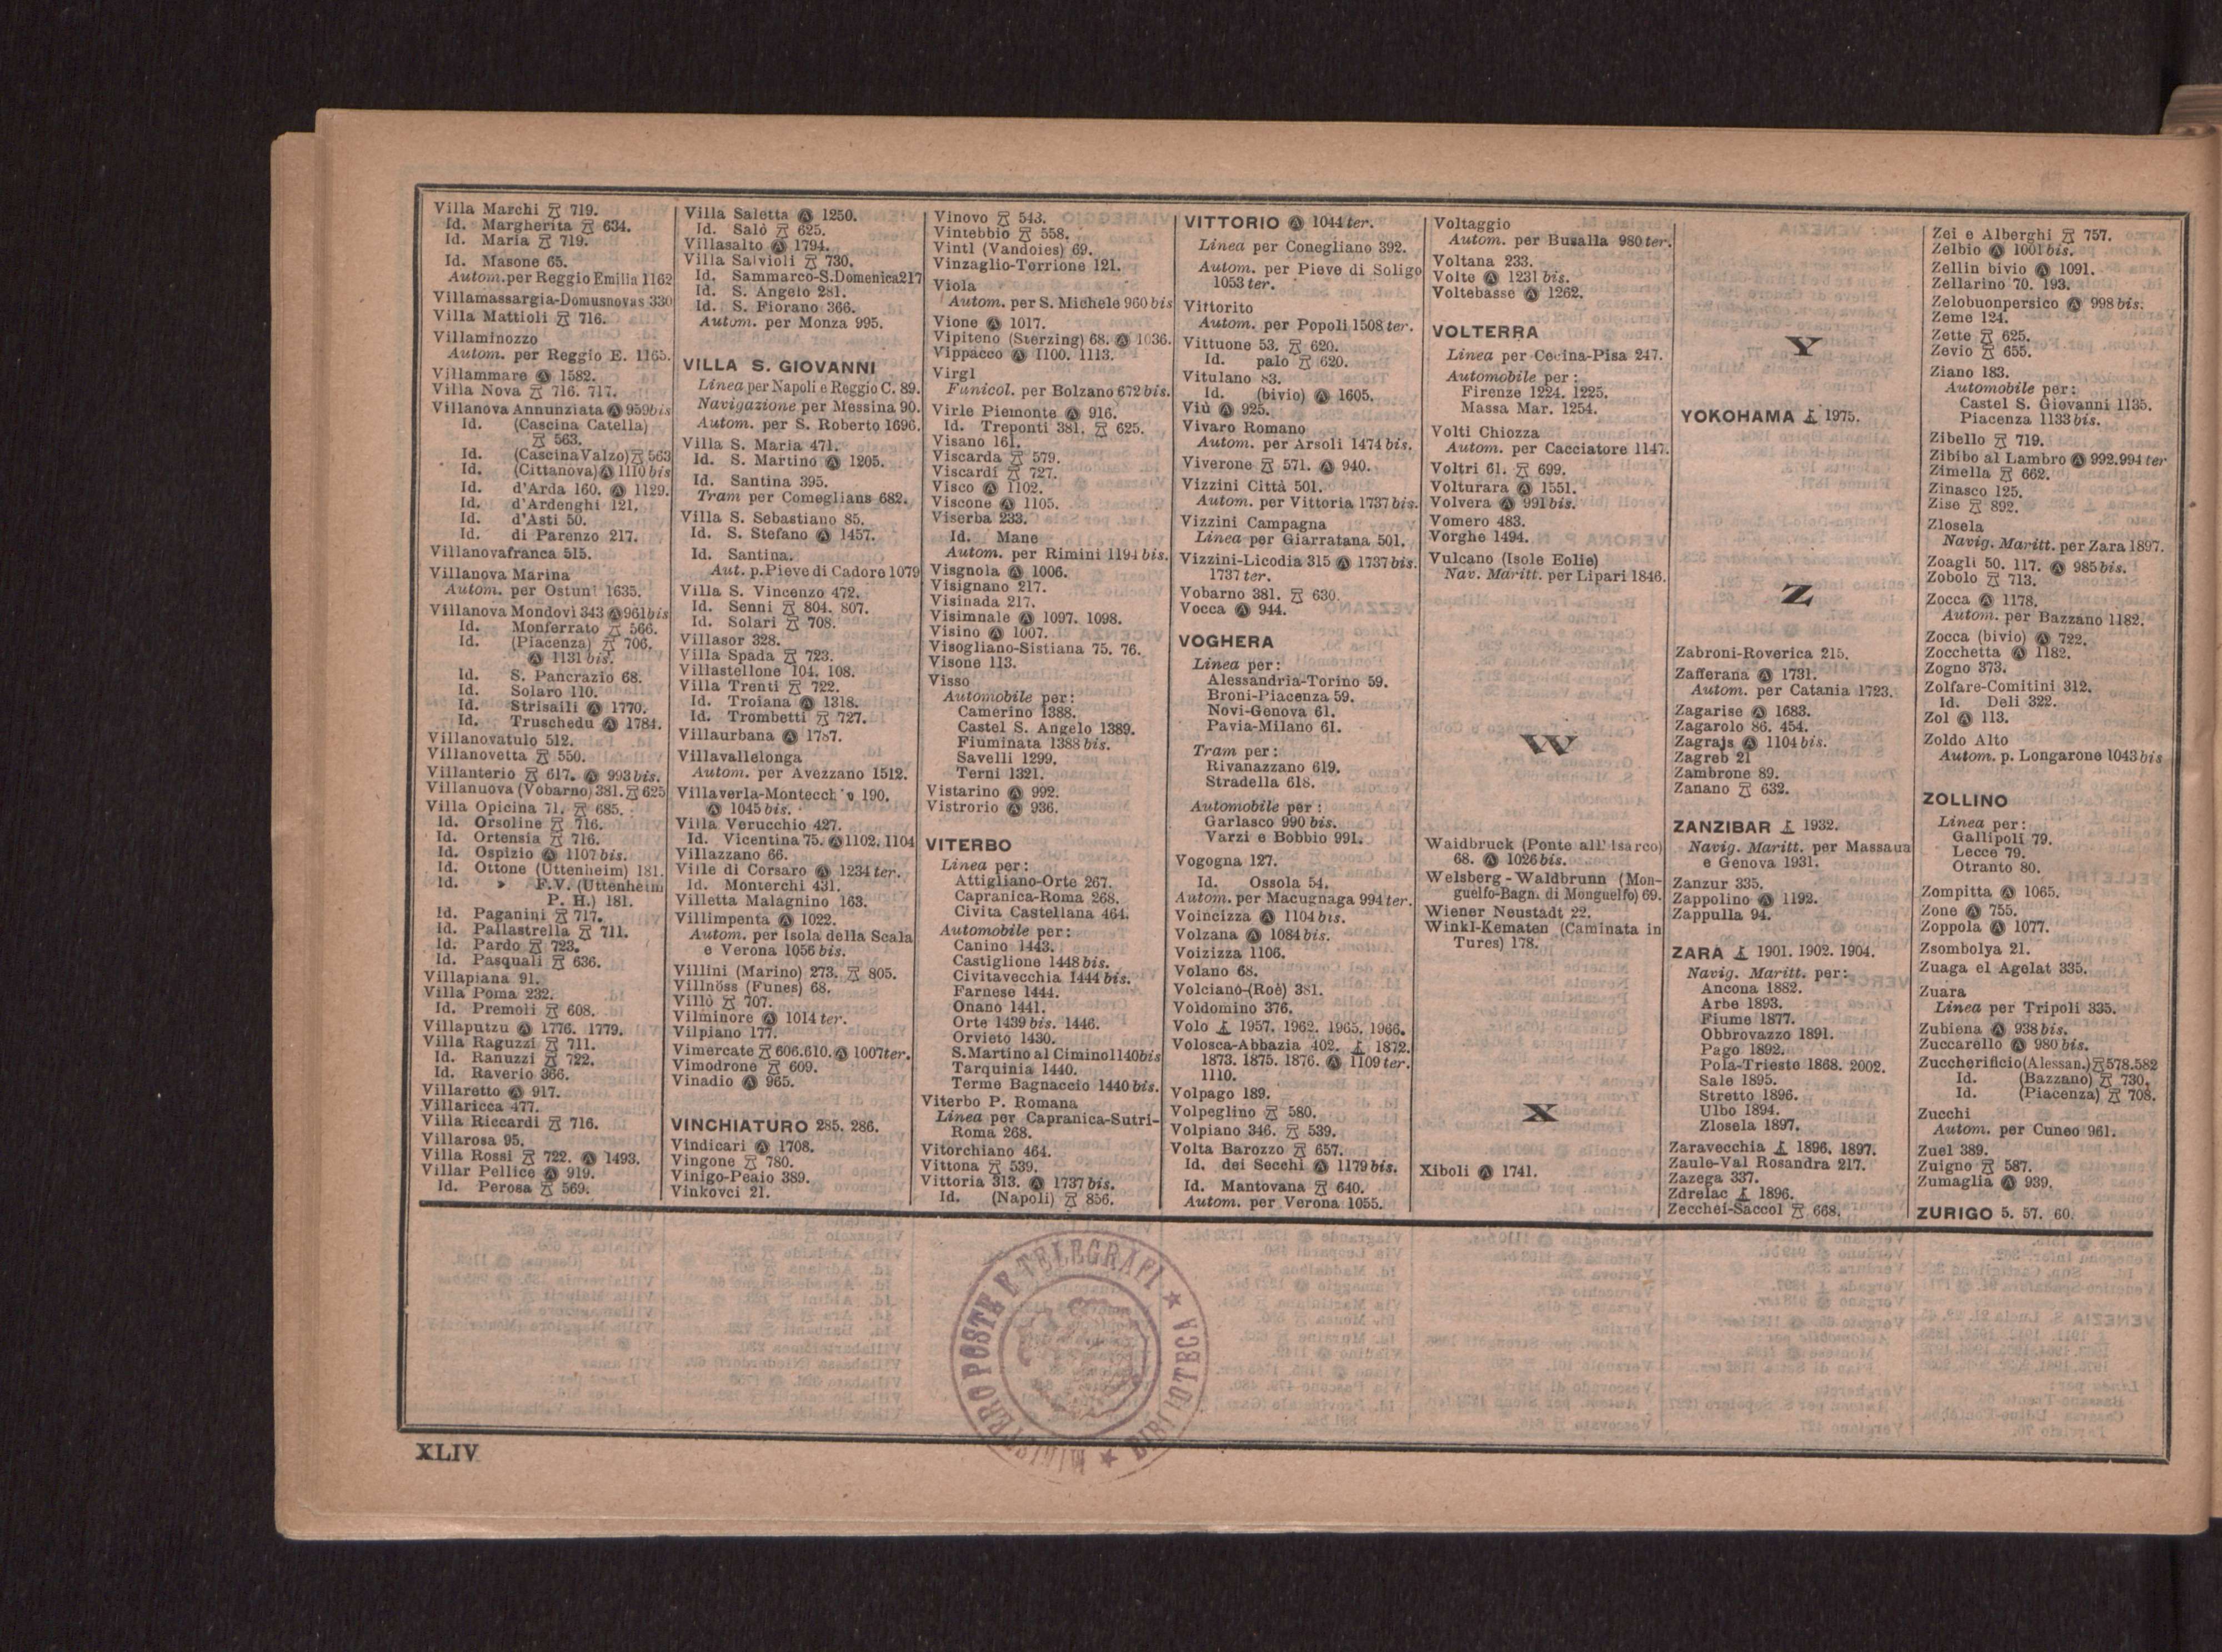 Villa Marchi 719.
Id. Margherita 634.
Id. Maria 719.
Id. Masone 65.
Autom. per Reggio Emilia 1162
Villamassargia-Domusnovas 330
Villa Mattioli 716.
Villaminozzo
Autom. per Reggio E. 1165.
Villammare Ⓐ 1582.
Villa Nova 716. 717.
Villanova Annunziata Ⓐ 959bis
Id. (Cascina Catella)
563.
Id. (Cascina Valzo) 563
Id. (Cittanova) Ⓐ 1110 bis
Id. d'Arda 160. Ⓐ 1129.
Id. d'Ardenghi 121.
Id. d'Asti 50.
Id. di Parenzo 217.
Villanovafranca 515.
Villanova Marina
Autom. per Ostuni 1635.
Villanova Mondovì 343 Ⓐ 961bis
Id. Monferrato 566.
Id. (Piacenza) 706.
Ⓐ 1131 bis.
Id. S. Pancrazio 68.
Id. Solaro 110.
Id. Strisaili Ⓐ 1770.
Id. Truschedu Ⓐ 1784.
Villanovatulo 512.
Villanovetta 550.
Villanterio 617. Ⓐ 993 bis.
Villanuova (Vobarno) 381. 625
Villa Opicina 71. 685.
Id. Orsoline 716.
Id. Ortensia 716.
Id. Ospizio Ⓐ 1107 bis.
Id. Ottone (Uttenheim) 181.
Id. » F.V. (Uttenheim
P. H.) 181.
Id. Paganini 717.
Id. Pallastrella 711.
Id. Pardo 723.
Id. Pasquali 636.
Villapiana 91.
Villa Poma 232.
Id. Premoli 608.
Villaputzu Ⓐ 1776. 1779.
Villa Raguzzi 711.
Id. Ranuzzi 722.
Id. Raverio 366.
Villaretto Ⓐ 917.
Villaricca 477.
Villa Riccardi 716.
Villarosa 95.
Villa Rossi 722. Ⓐ 1493.
Villar Pellice Ⓐ 919.
Id. Perosa 569.
Villa Saletta Ⓐ 1250.
Id. Salò 625.
Villasalto Ⓐ 1794.
Villa Salvioli 730.
Id. Sammarco-S.Domenica 217
Id. S. Angelo 281.
Id. S. Fiorano 366.
Autom. per Monza 995.
VILLA S. GIOVANNI
Linea per Napoli e Reggio C. 89.
Navigazione per Messina 90.
Autom. per S. Roberto 1696.
Villa S. Maria 471.
Id. S. Martino Ⓐ 1205.
Id. Santina 395.
Tram per Comeglians 682.
Villa S. Sebastiano 85.
Id. S. Stefano Ⓐ 1457.
Id. Santina.
Aut. p. Pieve di Cadore 1079
Villa S. Vincenzo 472.
Id. Senni 804. 807.
Id. Solari 708.
Villasor 328.
Villa Spada 723.
Villastellone 104. 108.
Villa Trenti 722.
Id. Troiana Ⓐ 1318.
Id. Trombetti 727.
Villaurbana Ⓐ 1787.
Villavallelonga
Autom. per Avezzano 1512.
Villaverla-Montecchio 190.
Ⓐ 1045 bis.
Villa Verucchio 427.
Id. Vicentina 75. Ⓐ 1102. 1104
Villazzano 66.
Ville di Corsaro Ⓐ 1234 ter.
Id. Monterchi 431.
Villetta Malagnino 163.
Villimpenta Ⓐ 1022.
Autom. per Isola della Scala
e Verona 1056 bis.
Villini (Marino) 273. 805.
Villnöss (Funes) 68.
Villò 707.
Vilminore Ⓐ 1014 ter.
Vilpiano 177.
Vimercate 606.610. Ⓐ 1007ter.
Vimodrone 609.
Vinadio Ⓐ 965.
VINCHIATURO 285. 286.
Vindicari Ⓐ 1708.
Vingone 780.
Vinigo-Peaio 389.
Vinkovci 21.
Vinovo 543.
Vintebbio 558.
Vintl (Vandoies) 69.
Vinzaglio-Torrione 121.
Viola
Autom. per S. Michele 960 bis
Vione Ⓐ 1017.
Vipiteno (Sterzing) 68. Ⓐ 1036.
Vippacco Ⓐ 1100. 1113.
Virgl
Funicol. per Bolzano 672 bis.
Virle Piemonte Ⓐ 916.
Id. Treponti 381. 625.
Visano 161.
Viscarda 579.
Viscardi 727.
Visco Ⓐ 1102.
Viscone Ⓐ 1105.
Viserba 233.
Id. Mane
Autom. per Rimini 1194 bis.
Visgnola Ⓐ 1006.
Visignano 217.
Visinada 217.
Visimnale Ⓐ 1097. 1098.
Visino Ⓐ 1007.
Visogliano-Sistiana 75. 76.
Visone 113.
Visso
Automobile per:
Camerino 1388.
Castel S. Angelo 1389.
Fiuminata 1388 bis.
Savelli 1299.
Terni 1321.
Vistarino Ⓐ 992.
Vistrorio Ⓐ 936.
VITERBO
Linea per:
Attigliano-Orte 267.
Capranica-Roma 268.
Civita Castellana 464.
Automobile per:
Canino 1443.
Castiglione 1448 bis.
Civitavecchia 1444 bis.
Farnese 1444.
Onano 1441.
Orte 1439 bis. 1446.
Orvieto 1430.
S.Martino al Cimino 1140bis
Tarquinia 1440.
Terme Bagnaccio 1440 bis.
Viterbo P. Romana
Linea per Capranica-Sutri-
Roma 268.
Vitorchiano 464.
Vittona 539.
Vittoria 313. Ⓐ 1737 bis.
Id. (Napoli) 856.
VITTORIO Ⓐ 1044 ter.
Linea per Conegliano 392.
Autom. per Pieve di Soligo
1053 ter.
Vittorito
Autom. per Popoli 1508 ter.
Vittuone 53. 620.
Id. palo 620.
Vitulano 83.
Id. (bivio) Ⓐ 1605.
Viù Ⓐ 925.
Vivaro Romano
Autom. per Arsoli 1474 bis.
Viverone 571. Ⓐ 940.
Vizzini Città 501.
Autom. per Vittoria 1737 bis.
Vizzini Campagna
Linea per Giarratana 501.
Vizzini-Licodia 315 Ⓐ 1737 bis.
1737 ter.
Vobarno 381. 630.
Vocca Ⓐ 944.
VOGHERA
Linea per:
Alessandria-Torino 59.
Broni-Piacenza 59.
Novi-Genova 61.
Pavia-Milano 61.
Tram per:
Rivanazzano 619.
Stradella 618.
Automobile per:
Garlasco 990 bis.
Varzi e Bobbio 991.
Vogogna 127.
Id. Ossola 54.
Autom. per Macugnaga 994 ter.
Voincizza Ⓐ 1104 bis.
Volzana Ⓐ 1084 bis.
Voizizza 1106.
Volano 68.
Volciano-(Roè) 381.
Voldomino 376.
Volo 1957. 1962. 1965. 1966.
Volosca-Abbazia 402. 1872.
1873. 1875. 1876. Ⓐ 1109 ter.
1110.
Volpago 189.
Volpeglino 580.
Volpiano 346. 539.
Volta Barozzo 657.
Id. dei Secchi Ⓐ 1179 bis.
Id. Mantovana 640.
Autom. per Verona 1055.
Voltaggio
Autom. per Busalla 980 ter.
Voltana 233.
Volte Ⓐ 1231 bis.
Voltebasse Ⓐ 1262.
VOLTERRA
Linea per Cecina-Pisa 247.
Automobile per:
Firenze 1224. 1225.
Massa Mar. 1254.
Volti Chiozza
Autom. per Cacciatore 1147.
Voltri 61. 699.
Volturara Ⓐ 1551.
Volvera Ⓐ 991 bis.
Vomero 483.
Vorghe 1494.
Vulcano (Isole Eolie)
Nav. Maritt. per Lipari 1846.
W
Waidbruck (Ponte all'Isarco)
68. Ⓐ 1026 bis.
Welsberg - Waldbrunn (Mon-
guelfo-Bagn. di Monguelfo) 69.
Wiener Neustadt 22.
Winkl-Kematen (Caminata in
Tures) 178.
X
Xiboli Ⓐ 1741.
Y
YOKOHAMA 1975.
Z
Zabroni-Roverica 215.
Zafferana Ⓐ 1731.
Autom. per Catania 1723.
Zagarise Ⓐ 1683.
Zagarolo 86. 454.
Zagrajs Ⓐ 1104 bis.
Zagreb 21
Zambrone 89.
Zanano 632.
ZANZIBAR 1932.
Navig. Maritt. per Massaua
e Genova 1931.
Zanzur 335.
Zappolino Ⓐ 1192.
Zappulla 94.
ZARA 1901. 1902. 1904.
Navig. Maritt. per:
Ancona 1882.
Arbe 1893.
Fiume 1877.
Obbrovazzo 1891.
Pago 1892.
Pola-Trieste 1868. 2002.
Sale 1895.
Stretto 1896.
Ulbo 1894.
Zlosela 1897.
Zaravecchia 1896. 1897.
Zaule-Val Rosandra 217.
Zazega 337.
Zdrelac 1896.
Zecchei-Saccol 668.
Zei e Alberghi 757.
Zelbio Ⓐ 1001 bis.
Zellin bivio Ⓐ 1091.
Zellarino 70. 193.
Zelobuonpersico Ⓐ 998 bis.
Zeme 124.
Zette 625.
Zevio 655.
Ziano 183.
Automobile per:
Castel S. Giovanni 1135.
Piacenza 1133 bis.
Zibello 719.
Zibibo al Lambro Ⓐ 992.994 ter
Zimella 662.
Zinasco 125.
Zise 892.
Zlosela
Navig. Maritt. per Zara 1897.
Zoagli 50. 117. Ⓐ 985 bis.
Zobolo 713.
Zocca Ⓐ 1178.
Autom. per Bazzano 1182.
Zocca (bivio) Ⓐ 722.
Zocchetta Ⓐ 1182.
Zogno 373.
Zolfare-Comitini 312.
Id. Deli 322.
Zol Ⓐ 113.
Zoldo Alto
Autom. p. Longarone 1043 bis
ZOLLINO
Linea per:
Gallipoli 79.
Lecce 79.
Otranto 80.
Zompitta Ⓐ 1065.
Zone Ⓐ 755.
Zoppola Ⓐ 1077.
Zsombolya 21.
Zuaga el Agelat 335.
Zuara
Linea per Tripoli 335.
Zubiena Ⓐ 938 bis.
Zuccarello Ⓐ 980 bis.
Zuccherificio (Alessan.) 578.582
Id. (Bazzano) 730.
Id. (Piacenza) 708.
Zucchi
Autom. per Cuneo 961.
Zuel 389.
Zuigno 587.
Zumaglia Ⓐ 939.
ZURIGO 5. 57. 60.
MINISTERO POSTE E TELEGRAFI ★ BIBLIOTECA ★
XLIV